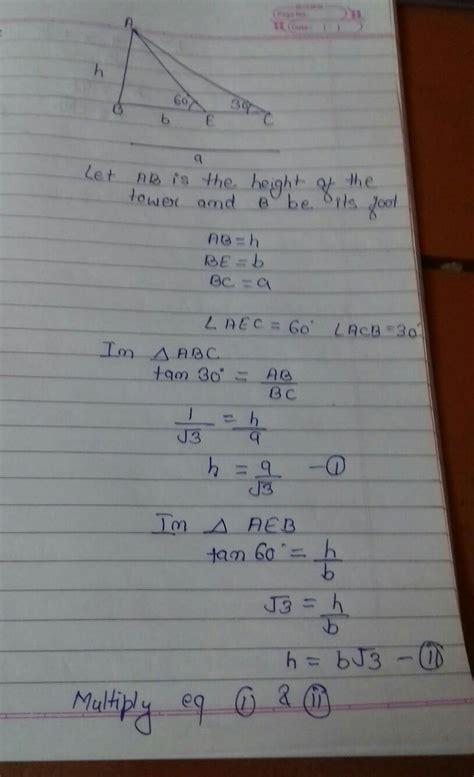 Page No.
Date
A
h
60
30
B
b
E
C
a
Let AB is the height of the
tower and B be its foot
AB = h
BE = b
BC = a
∠AEC = 60° ∠ACB = 30°
In △ABC
tan 30° = AB/BC
1/√3 = h/a
h = a/√3 - ⓘ
In △ AEB
tan 60° = h/b
√3 = h/b
h = b√3 - ⓘⓘ
Multiply eq ⓘ & ⓘⓘ